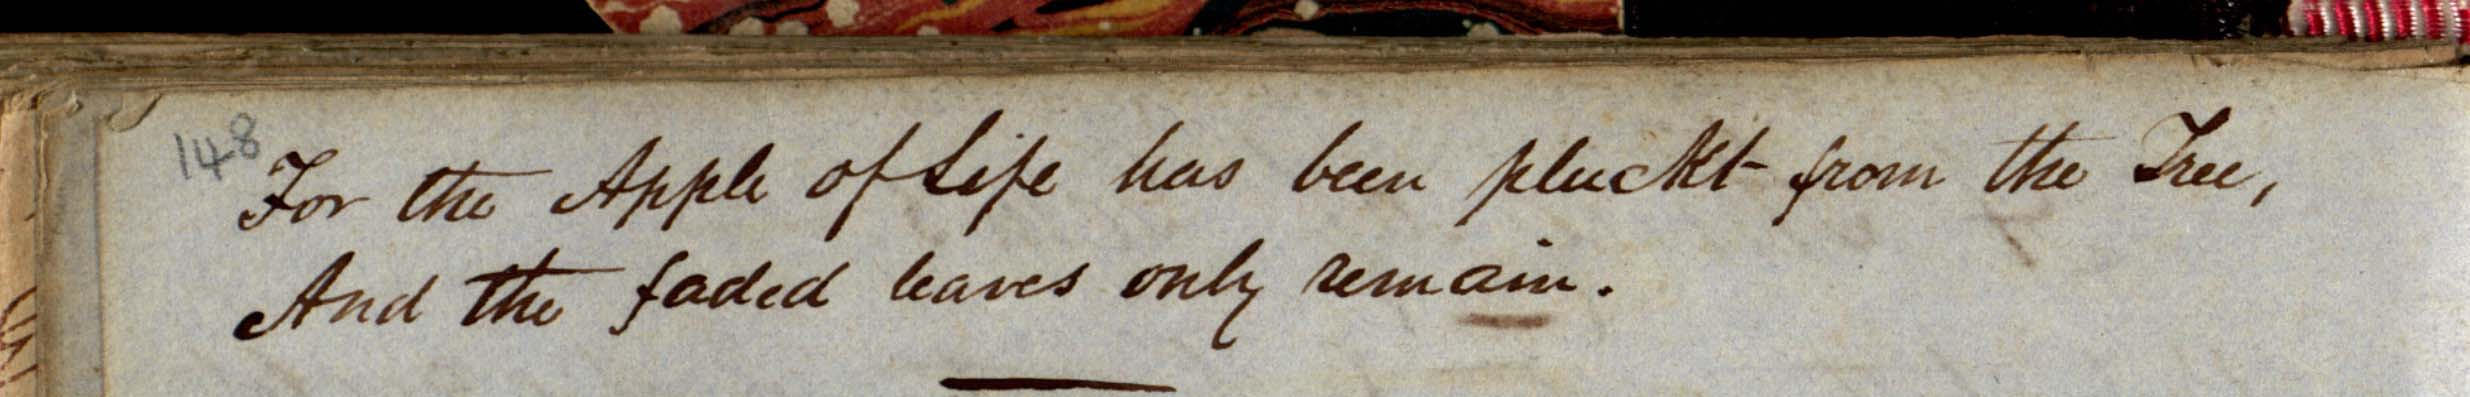 148
For the Apple of Life has been pluckt from the Tree,
And the faded leaves only remain.